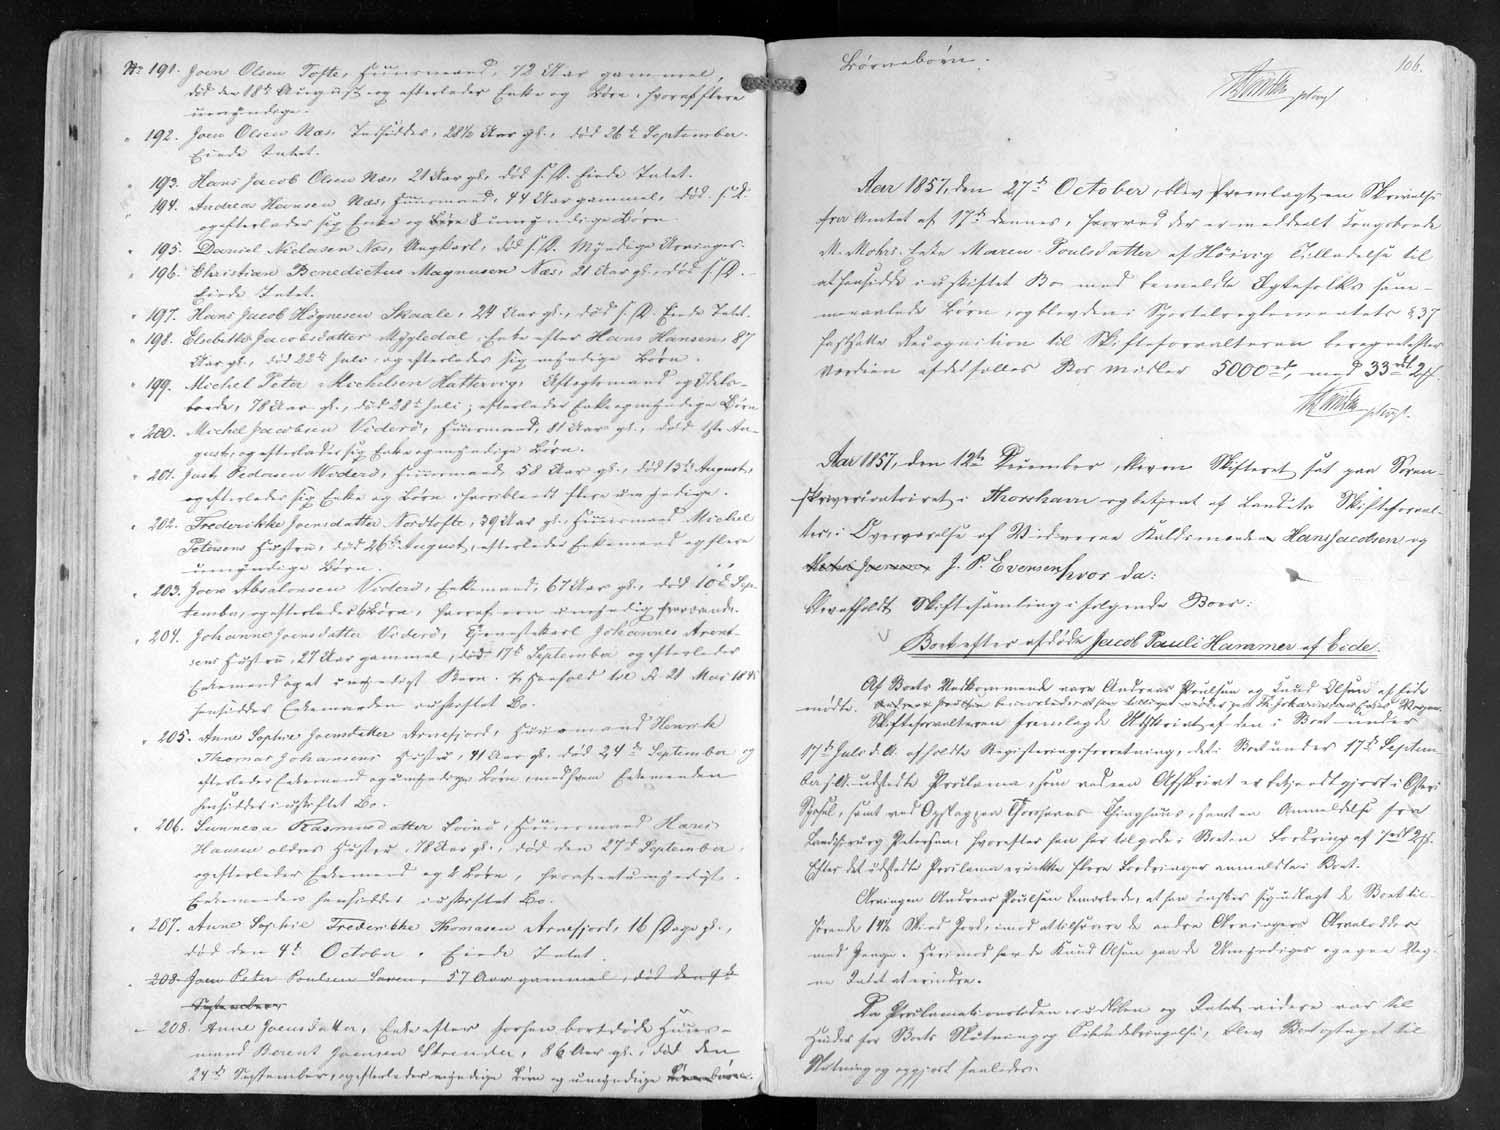 No 191. Joen Olsen Tofte, Huusmand, 72 Aar gammel,
död den 18de August og efterlader Enke og Börn, hvoraf flere
umyndige.
" 192. Joen Olsen Næs, Indsidder, 28½ Aar gl., död 26de September.
Eiede Intet.
" 193. Hans Jacob Olsen Næs, 21 Aar gl., död s. D. Eiede Intet.
" 194. Andreas Hansen Næs, Huusmand, 44 Aar gammel, död s. D.
og efterlader sig Enke og 8 umyndige Börn.
" 195. Daniel Niclasen Næs, Ungkarl, död s. D. Myndige Arvinger.
" 196. Christian Benedictus Magnusen Næs, 21 Aar gl., död s. D.
Eiede Intet.
" 197. Hans Jacob Högnesen Skaale, 24 Aar gl., död s. D. Eiede Intet.
" 198. Elsebeth Jacobsdatter Mygledal, Enke efter Hans Hansen, 87
Aar gl., död 22de Juli og efterlader sig myndige Börn.
" 199. Michel Peter Michelsen Hattervig, Aftægtsmand og Odels-
bonde, 78 Aar gl., död 28de Juli; efterlader Enke og myndige Börn
" 200. Michel Jacobsen Viderö, Huusmand, 81 Aar gl., död 1ste Au-
gust, og efterlader sig Enke og myndige Börn.
" 201. Just Pedersen Viderö, Huusmand, 58 Aar gl., död 13de August,
og efterlader sig Enke og Börn, hvoriblandt flere umyndige.
" 202. Frederikke Joensdatter Nordtofte, 39 Aar gl., Huusmand Michel
Petersens Hustru, död 26de August, efterlader Enkemand og flere
umyndige Börn.
" 203. Joen Absalonsen Viderö, Enkemand, 67 Aar gl., död 10de Sep-
tember, og efterlader 6 Börn, hvoraf een umyndig fraværende.
" 204. Johanne Joensdatter Viderö, Tjenestekarl Johannes Arent-
sens Hustru, 27 Aar gammel, död 17de September og efterlader
Enkemand og et umyndigt Barn. I Henhold til A. 21 Mai 1845
hensidder Enkemanden i uskiftet Bo.
" 205. Anne Sophie Joensdatter Arnefjord, Huusmand Henrik
Thomas Johansens Hustru, 41 Aar gl., död 24de September og
efterlader Enkemand og umyndige Börn, med hvem Enkemanden
hensidder i uskiftet Bo.
" 206. Sunneva Rasmusdatter Svinö, Huusmand Hans
Hansen ældres Hustru, 78 Aar gl., död den 27de September,
og efterlader Enkemand og 2 Börn, hvoraf et umyndigt.
Enkemanden hensidder i uskiftet Bo.
" 207. Anne Sophie Frederikke Thomasen Arnefjord, 16 Dage gl.,
död den 4de October. Eiede Intet.
" 208. Joen Peter Poulsen Saxen, 57 Aar gammel, död den 9de
September
" 208. Anne Joensdatter, Enke efter forhen bortdöde Huus-
mand Berent Joensen Strender, 86 Aar gl., död den
24de September, og efterlader myndige Börn og umyndige
Börnebörn.
106.
Aar 1857, den 27de October, blev fremlagt en Skrivelse
fra Amtet af 17de dennes, hvorved der er meddelt Kongsbonde
M. Mohrs Enke Maren Poulsdatter af Hösvig Tilladelse til
at hensidde i uskiftet Bo med bemeldte Ægtefolks sam-
menavlede Börn, og blev den i Sportelreglementets § 37
fastsatte Recognition til Skifteforvalteren beregnet efter
Værdien af det fælles Boes Midler 5000 rd, med 33 rd 2 sk.
Aar 1857, den 12te December, blev Skifteret sat paa Soren-
skrivercontoiret i Thorshavn og betjent af Landets Skifteforval-
ter, i Overværelse af Vidnerne Kaldsmænd Hans Jacobsen og
J. P. Evensen hvor da:
blev afholdt Skiftesamling i følgende Boer:
Boet efter afdöde Jacob Pauli Hammer af Eide.
Af Boets Vedkommende vare Andreas Poulsen og Knud Olsen af Eide
mödte.
Skifteforvalteren fremlagde Udskrivt af den i Boet under
17de Juli d. A. afholdte Registreringsforretning, det i Boet under 17de Septem-
ber s. A. udstedte Proclama, som ved en Afskrivt er bekjendtgjort i Österö
Syssel, samt ved Opslag paa Thorshavns Thinghuus, samt en Anmeldelse fra
Landchirurg Petersen, hvorefter han har tilgode i Boet en Fordring af 7 rd 2 sk.
Efter det udstedte Proclama er ikke flere Fordringer anmeldte i Boet.
Arvingen Andreas Poulsen bemærkede, at han önsker sig udlagt de Boet til-
hörende 14½ Skind Jord, imod at tilsvare de andre Arvinger Arvelodder
med Penge. Herimod havde Knud Olsen paa de Umyndiges og egne Veg-
ne Intet at erindre.
Da Proclamationstiden er udlöben og Intet videre var til
Hinder for Boets Slutning og Tilendebringelse, blev Boet optaget til
Slutning og opgjort saaledes.